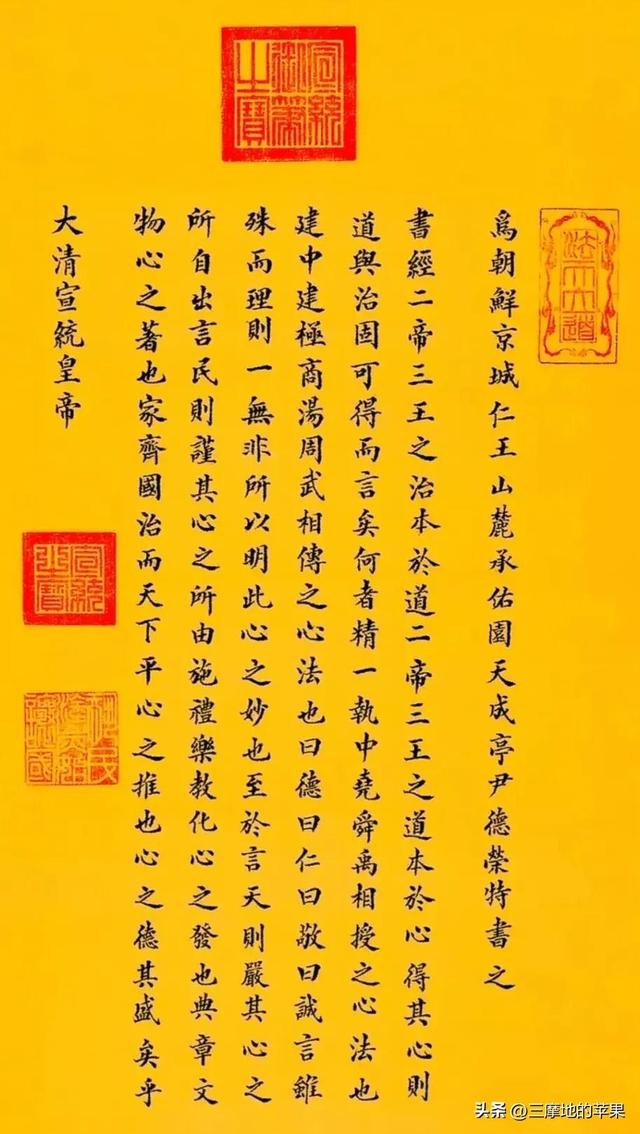 宣統御筆之寶
爲朝鮮京城仁王山麓承佑園天成亭尹德榮特書之
書經二帝三王之治本於道二帝三王之道本於心得其心則
道與治固可得而言矣何者精一執中堯舜禹相授之心法也
建中建極商湯周武相傳之心法也曰德曰仁曰敬曰誠言雖
殊而理則一無非所以明此心之妙也至於言天則嚴其心之
所自出言民則謹其心之所由施禮樂教化心之發也典章文
物心之著也家齊國治而天下平心之推也心之德其盛矣乎
大清宣統皇帝
宣統之寶
头条 @三摩地的苹果